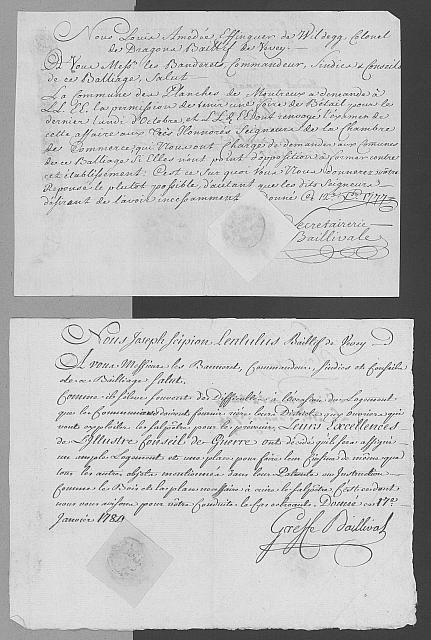 Nous Louis Amedée Effinguer de Wildegg, Colonel
de Dragons Baillif de Vevey.
A Vous Messrs les Banderets, Commandeur, Sindics & Conseils
de ce Balliage, Salut
La Commune des Planches de Montreux a demandé à
LL.EE. la permission de tenir une foire de Bétail pour le
dernier Lundi d'Octobre, et LL.EE. dont renvoyé l'examen de
cette affaire aux Très Honnorés Seigneurs de la Chambre
de Commerce; qui Nous ont Chargé de demander aux Comunes
de ce Balliage si Elles n'ont point d'opposition à former contre
cet établissement: C'est ce Sur quoi Vous Nous donnerez vôtre
Réponse le plutôt possible, d'autant que les dits Seigneurs
désirent de l'avoir incessamment Donné Ce 12e 1777
Secretairerie
Baillivale
Nous Joseph Scipion Lentulus Baillif de Vevey
A vous Messieurs les Banneret, Commandeur, Sindics et Conseils
de ce Bailliage Salut.
Comme il s'élève souvent des Difficultés à l'occasion du Logement
que les Communes doivent fournir rière leurs Districts aux ouvriers qui
vont exploiter les salpêtres, pour les prévenir, Leurs Excellences
de L'Illustre Conseil de Guerre ont décidé qu'il sera assigné
un simple Logement et une place pour faire leur Cuisine de même que
tous les autres objets mentionnés dans leur Patente ou Instruction
Comme le Bois et la place nécessaire à cuire le salpêtre. C'est ce dont
nous vous avisons pour vôtre Conduite le Cas échéant. Donné ce 17e
Janvier 1784
Greffe Baillival